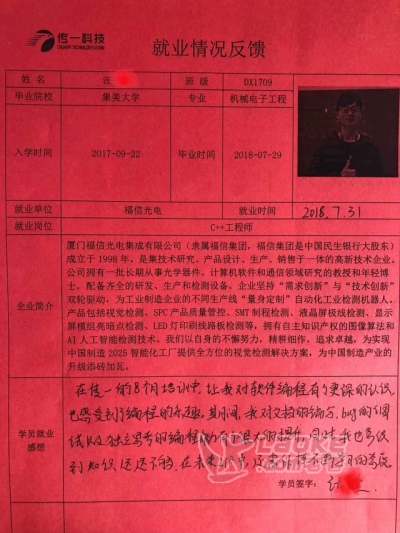 传一科技
就业情况反馈
姓 名 张 班 级 DX1709
毕业院校 集美大学 专业 机械电子工程
入学时间 2017-09-22 毕业时间 2018-07-29
就业单位 福信光电 就业时间 2018.7.31
就业岗位 C++工程师
企业简介
厦门福信光电集成有限公司（隶属福信集团，福信集团是中国民生银行大股东）
成立于 1998 年，是集技术研究、产品设计、生产、销售于一体的高新技术企业。
公司拥有一批长期从事光学器件、计算机软件和通信领域研究的教授和年轻博
士，配备齐全的研发、生产和检测设备。企业坚持“需求创新”与“技术创新”
双轮驱动，为工业制造企业的不同生产线“量身定制”自动化工业检测机器人。
产品包括视觉检测、SPC 产品质量管控、SMT 制程检测、液晶屏极线检测、显示
屏模组亮暗点检测、LED 灯印刷线路板检测等，拥有自主知识产权的图像算法和
AI 人工智能检测技术。我们以自身的不懈努力，精耕细作，追求卓越，为实现
中国制造 2025 智能化工厂提供全方位的视觉检测解决方案，为中国制造产业的
升级添砖加瓦。
学员就业
感想
在传一的8个月培训中，让我对软件编程有了更深的认识
也感受到了编程的乐趣。其间，我对文档的编写、bug的调
试以及独立思考的编程能力有很大的提升，同时我也意识
到知识远远不够，在未来
学员签字：